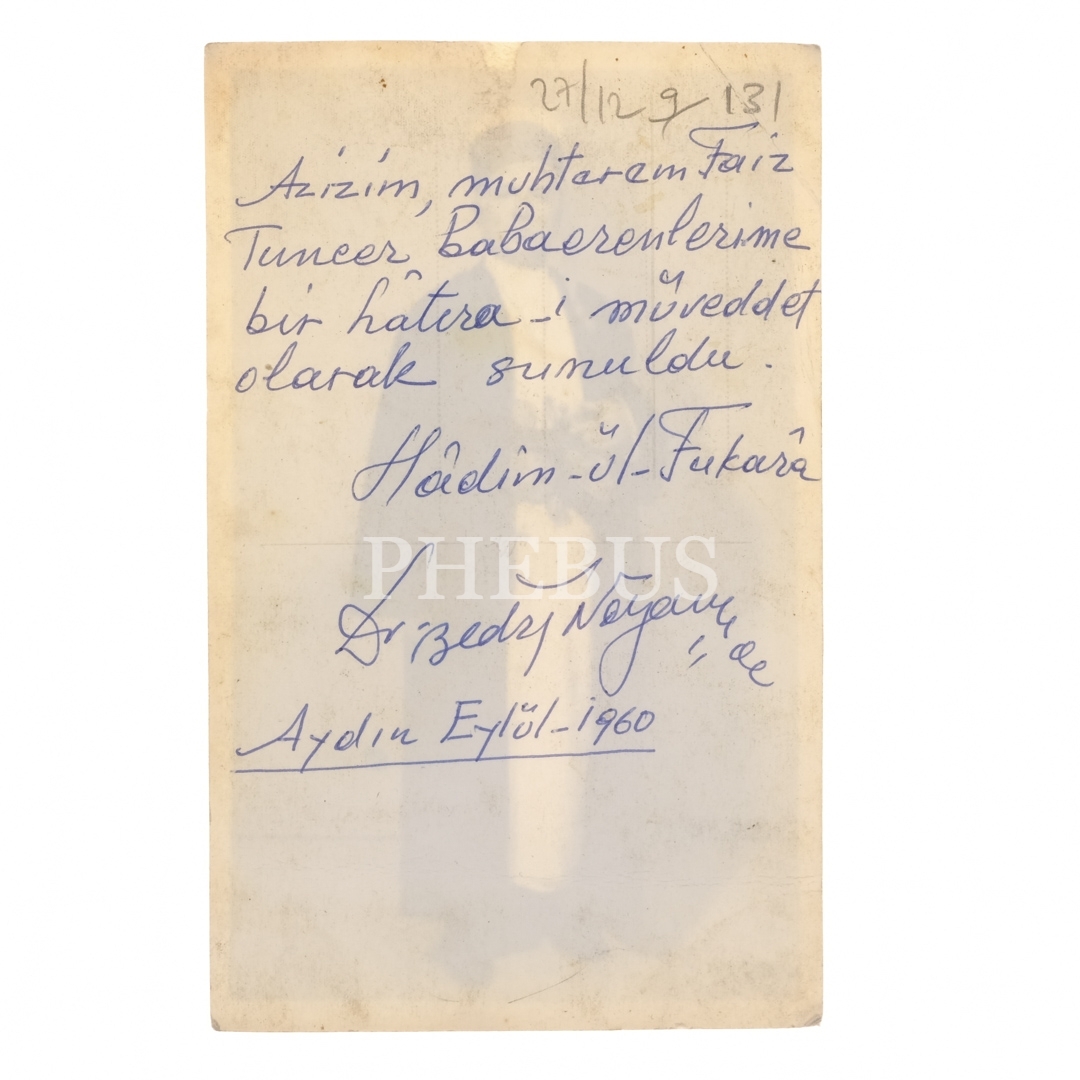 27/12 9/ 131
Azizim, muhterem Faiz
Tuncer Babaerenlerime
bir hâtıra-i müveddet
olarak sunuldu.
Hâdim-ül-Fukarâ
PHEBUS
Dr. Bedri Noyan
Aydın Eylül-1960